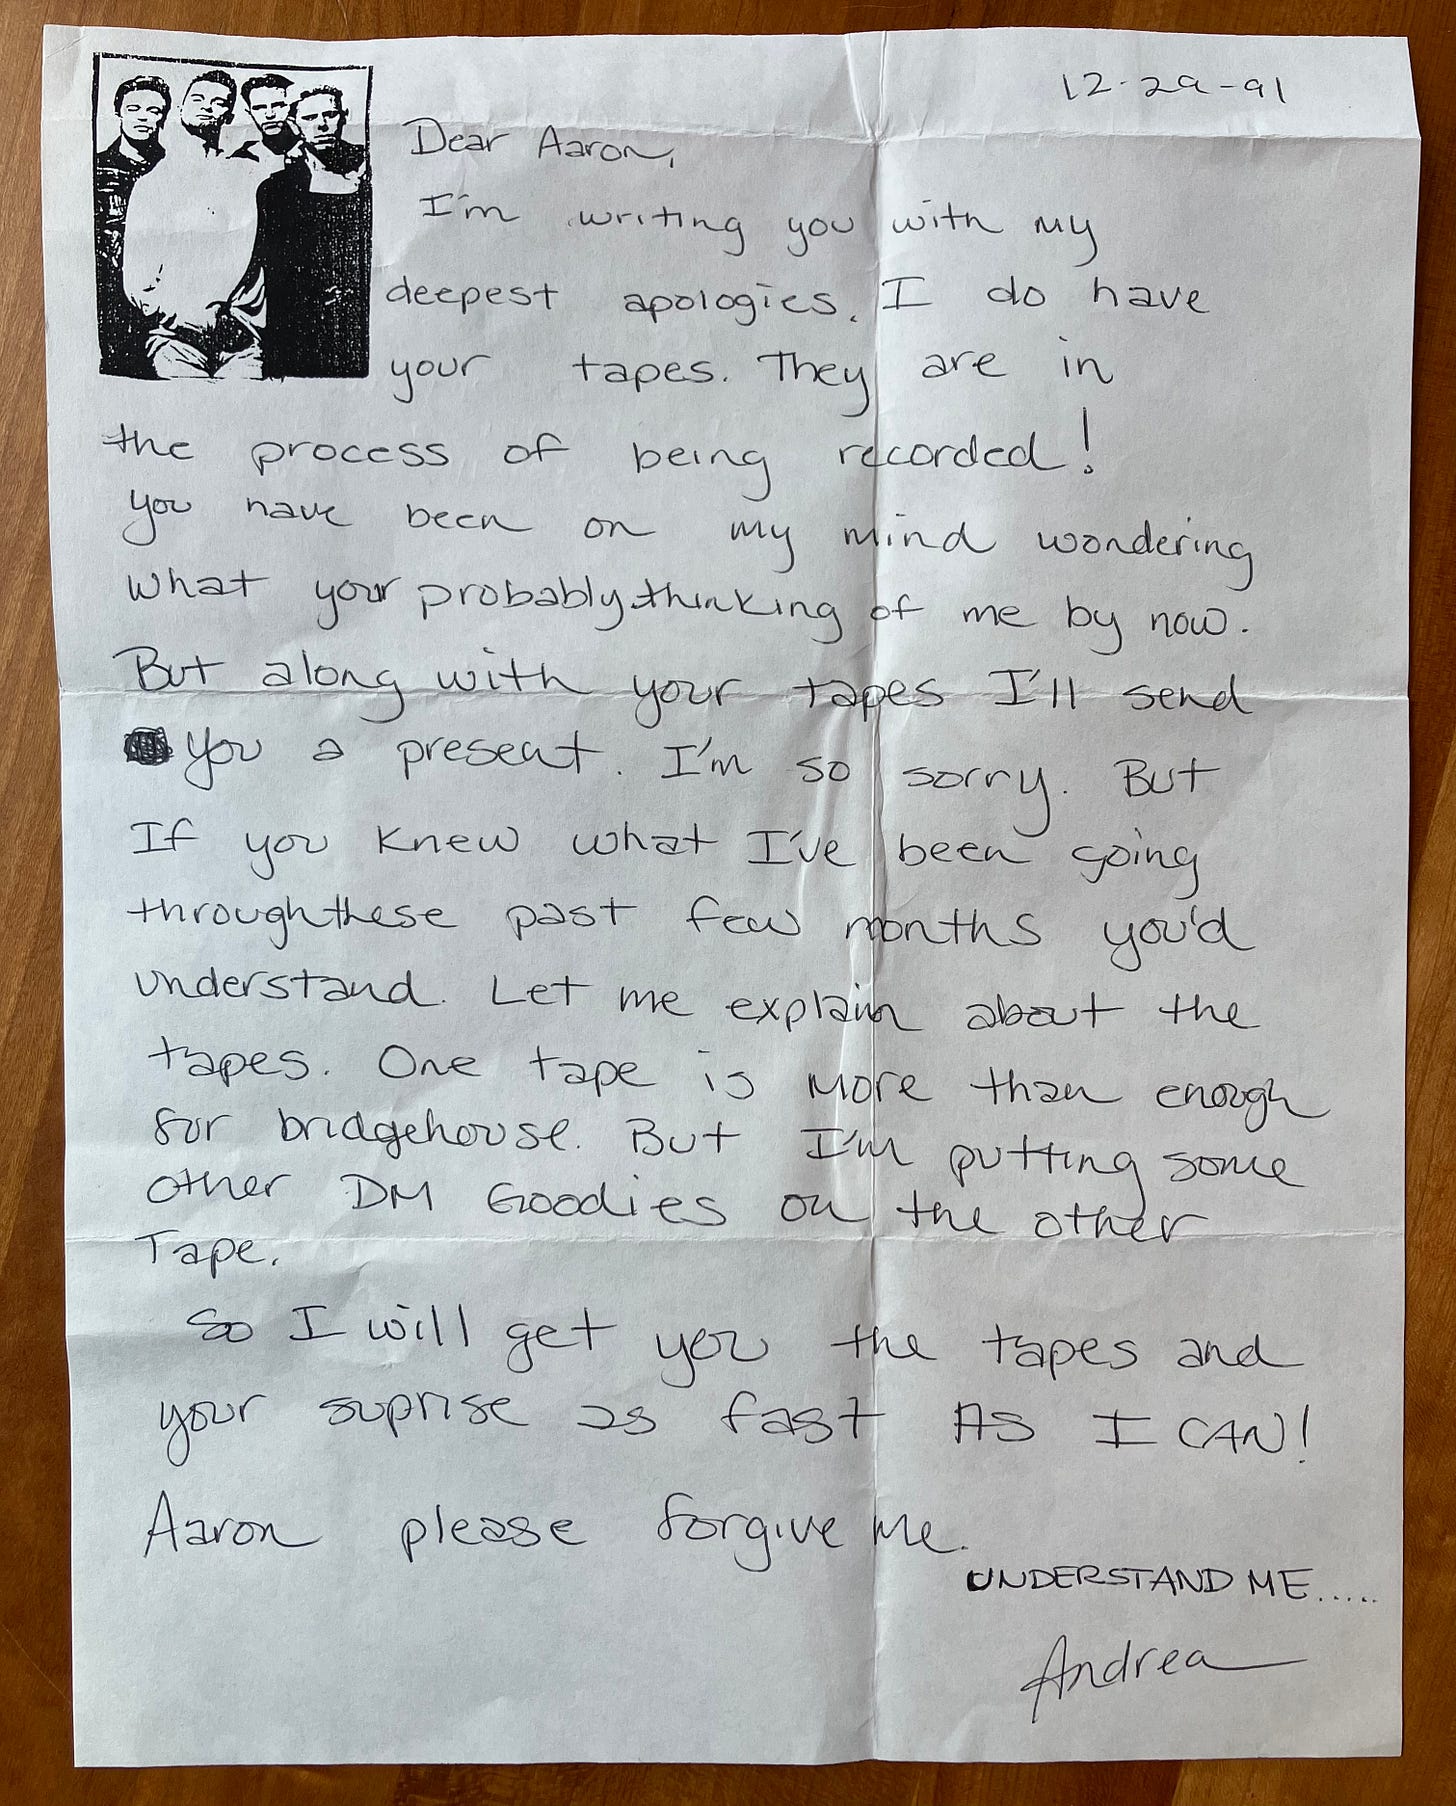 12-29-91
Dear Aaron,
I'm writing you with my
deepest apologies. I do have
your tapes. They are in
the process of being recorded!
you have been on my mind wondering
what your probably thinking of me by now.
But along with your tapes I'll send
you a present. I'm so sorry. But
If you knew what I've been going
through these past few months you'd
understand. Let me explain about the
tapes. One tape is more than enough
for bridgehouse. But I'm putting some
other DM Goodies on the other
Tape.
So I will get you the tapes and
your suprise as fast AS I CAN!
Aaron please forgive me.
UNDERSTAND ME.....
Andrea